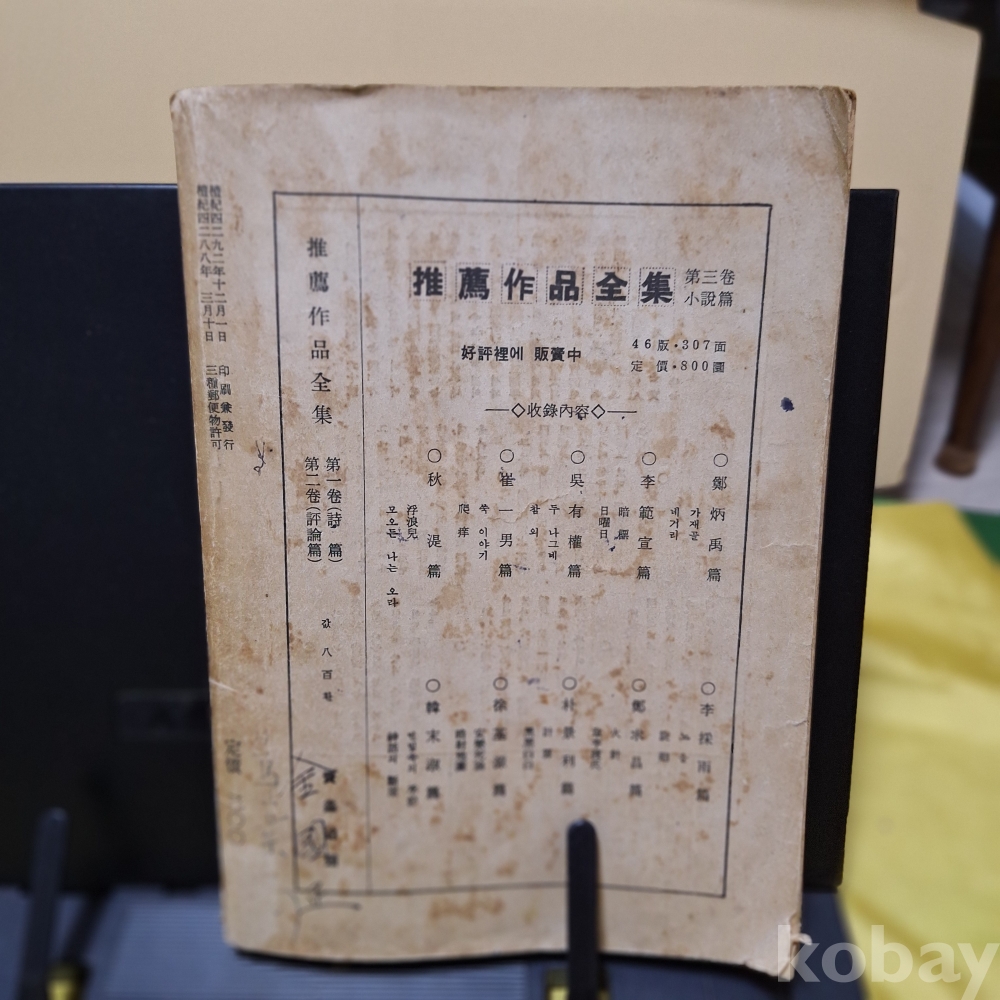 檀紀四二九二年十二月一日 印刷兼發行
檀紀四二八八年 三月十日 三種郵便物許可
推薦作品全集
第一卷(詩 篇)
第二卷(評論篇)
값 八百환
推薦作品全集
第三卷
小說篇
好評裡에 販賣中
46版·307面
定價·800圜
―◇收錄內容◇―
○鄭炳禹篇
가재골
네거리
○李範宣篇
暗標
日曜日
○吳有權篇
두 나그네
참외
○崔一男篇
쑥 이야기
爬痒
○秋湜篇
浮浪兒
모오든 나는 오라
○李採雨篇
○鄭
○朴景利篇
計算
黑黑白白
○徐基源篇
○韓末淑篇
神話의 斷崖
定價
kobay